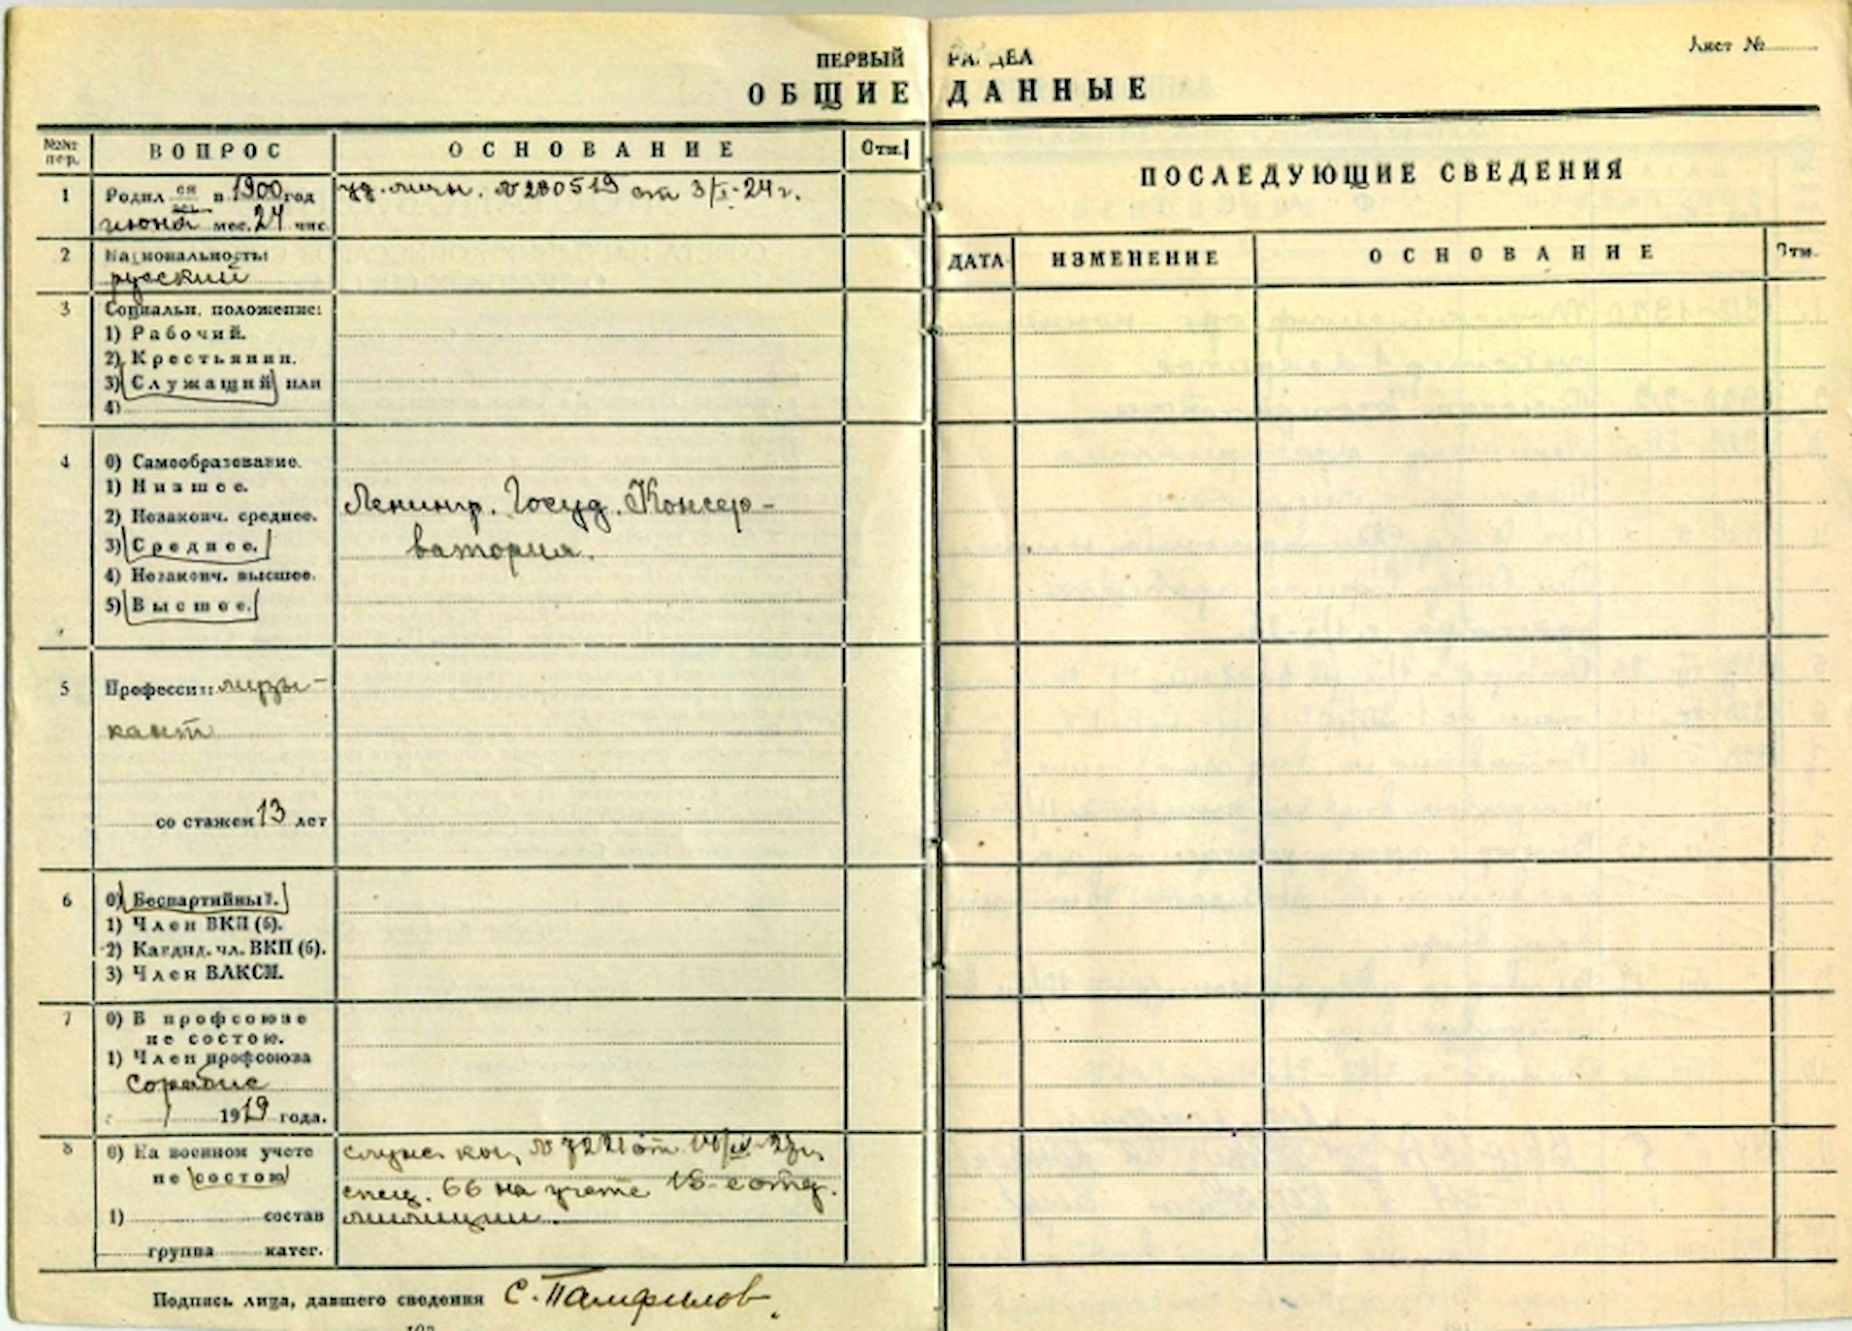 ПЕРВЫЙ РАЗДЕЛ
Лист №
ОБЩИЕ ДАННЫЕ
№№ пер.
ВОПРОС
ОСНОВАНИЕ
Отм.
1
Родил ся в 1900 год
июня мес. 24 чис.
уд. личн. № 280519 от 3/I-24 г.
2
Национальность:
русский
3
Социальн. положение:
1) Рабочий.
2) Крестьянин.
3) Служащий или
4)
4
0) Самообразование.
1) Низшее.
2) Незаконч. среднее.
3) Среднее.
4) Незаконч. высшее.
5) Высшее.
Ленингр. Госуд. Консер-
ватория.
5
Профессия: музы-
кант
со стажем 13 лет
6
0) Беспартийный.
1) Член ВКП (б).
2) Кандид. чл. ВКП (б).
3) Член ВЛКСМ.
7
0) В профсоюзе
не состою.
1) Член профсоюза
Сорабис
с 1919 года.
8
0) На военном учете
не состою
1) состав
группа катег.
№ 7221 от
спец. 66 на учете 18-е отд.
милиции.
Подпись лица, давшего сведения С. Памфилов
ПОСЛЕДУЮЩИЕ СВЕДЕНИЯ
ДАТА
ИЗМЕНЕНИЕ
ОСНОВАНИЕ
Отм.